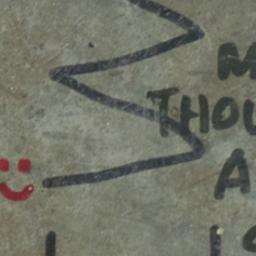 M
THOU
A